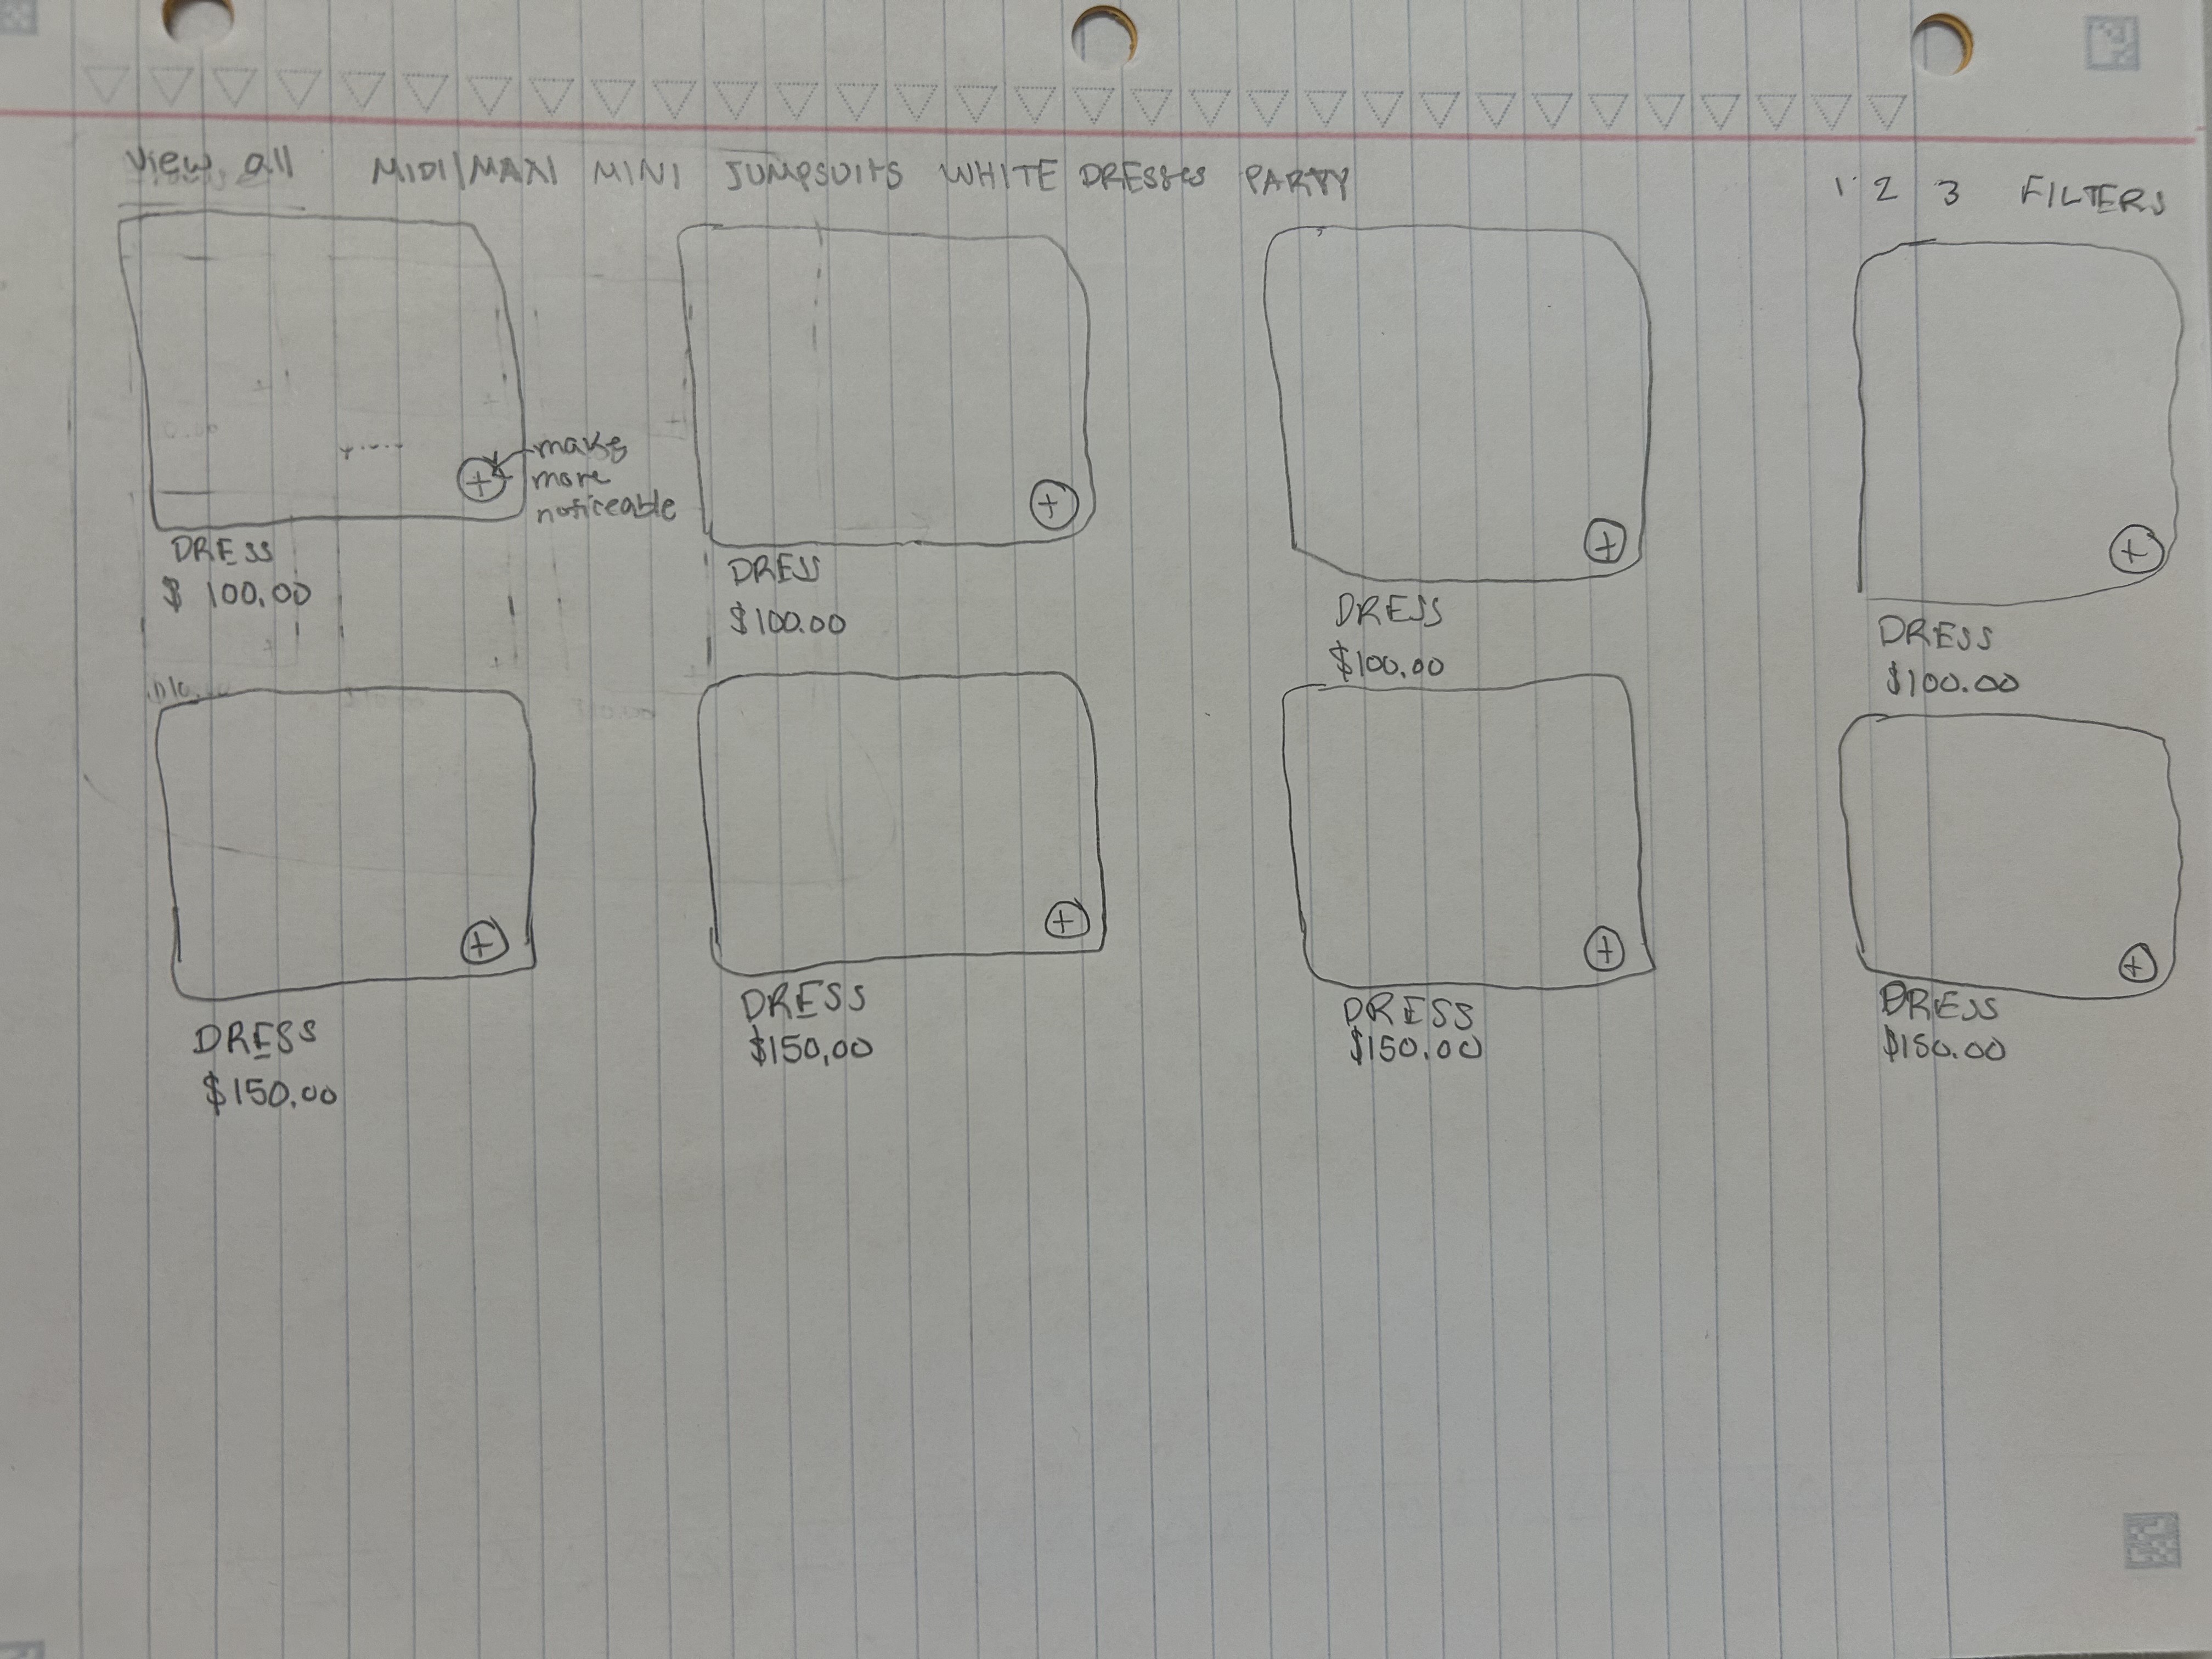 View all MIDI/MAXI MINI JUMPSUITS WHITE DRESSES PARTY 1 2 3 FILTERS
+ make
more
noticeable
+
+
+
DRESS
$ 100.00
DRESS
$100.00
DRESS
$100.00
DRESS
$100.00
+
+
+
+
DRESS
$150.00
DRESS
$150.00
DRESS
$150.00
DRESS
$150.00